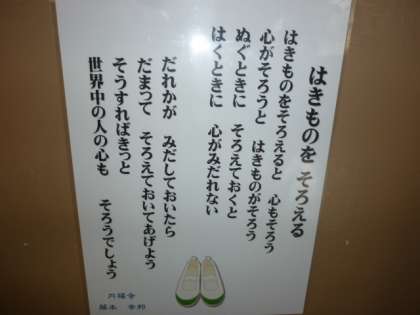 はきものを そろえる
はきものをそろえると 心もそろう
心がそろうと はきものがそろう
ぬぐときに そろえておくと
はくときに 心がみだれない
だれかが みだしておいたら
だまって そろえておいてあげよう
そうすればきっと
世界中の人の心も そろうでしょう
円福寺
藤本 幸邦